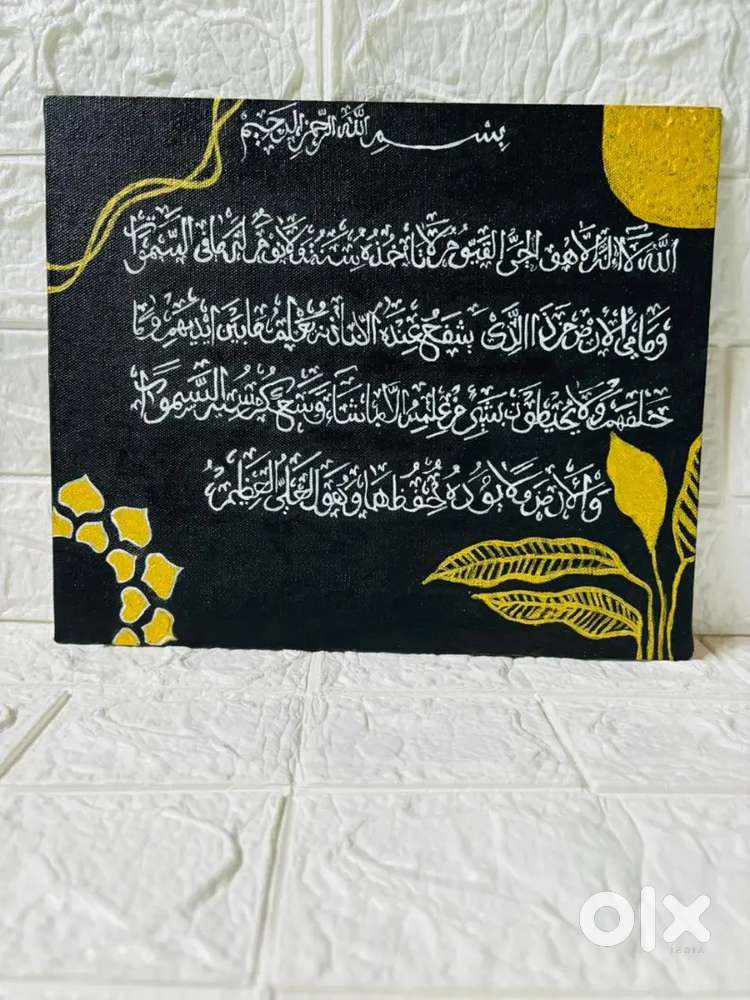 بسم الله الرحمن الرحيم
الله لا اله الا هو الحي القيوم لا تاخذه سنة ولا نوم له ما في السموات
وما في الارض من ذا الذي يشفع عنده الا باذنه يعلم ما بين ايديهم وما
خلفهم ولا يحيطون بشيء من علمه الا بما شاء وسع كرسيه السموات
والارض ولا يوده حفظهما وهو العلي العظيم
olx
INDIA